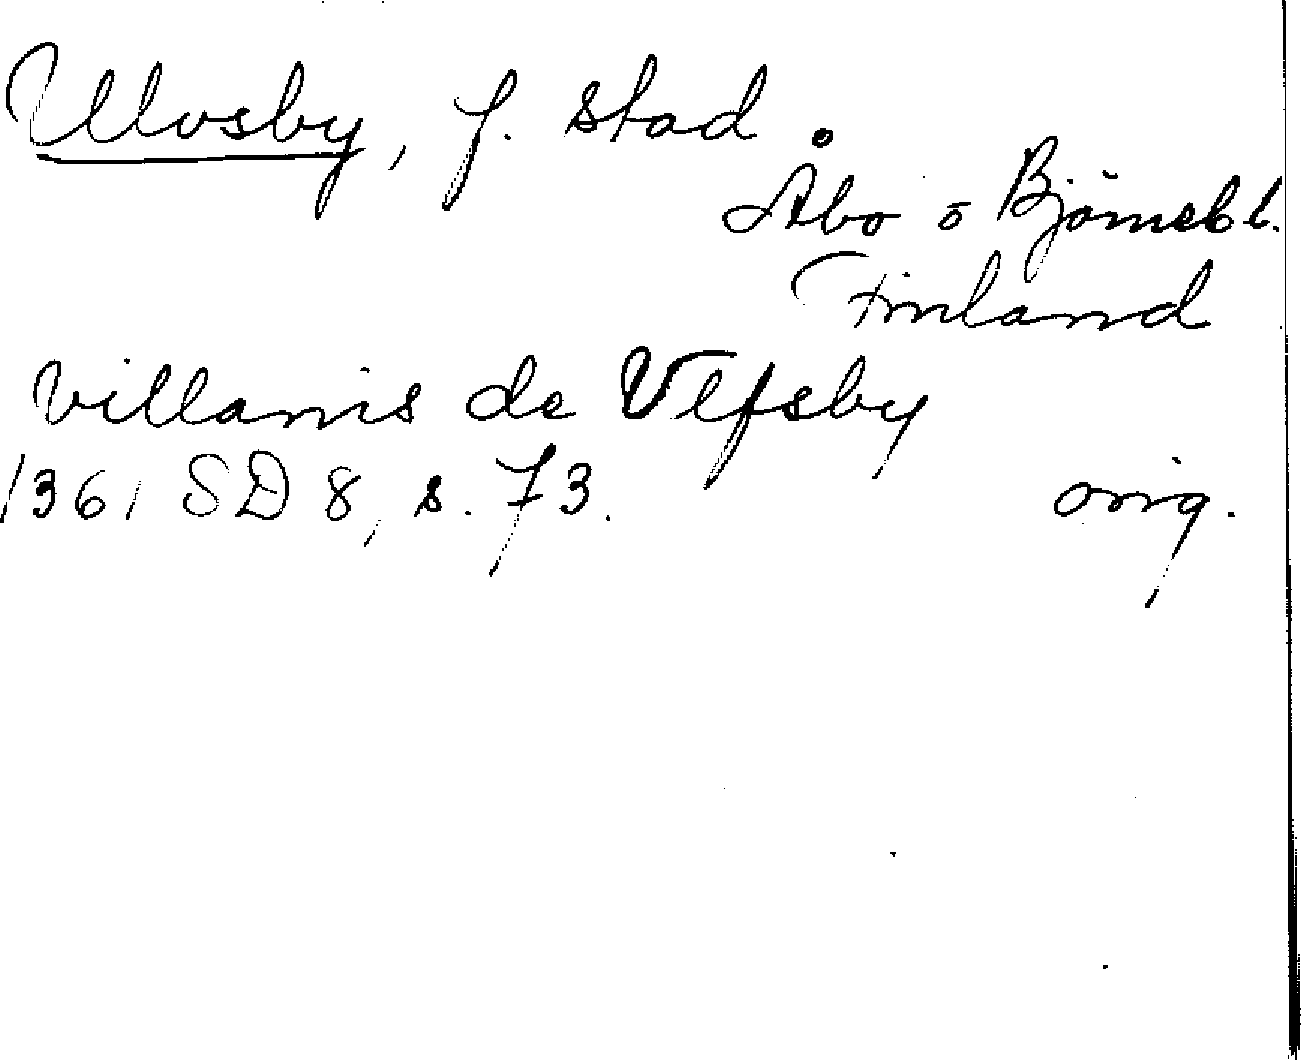 Ulvsby, f. stad.
Åbo o Björneb l.
Finland
villanis de Vlfsby
1361 SD 8, s. 73. orig.